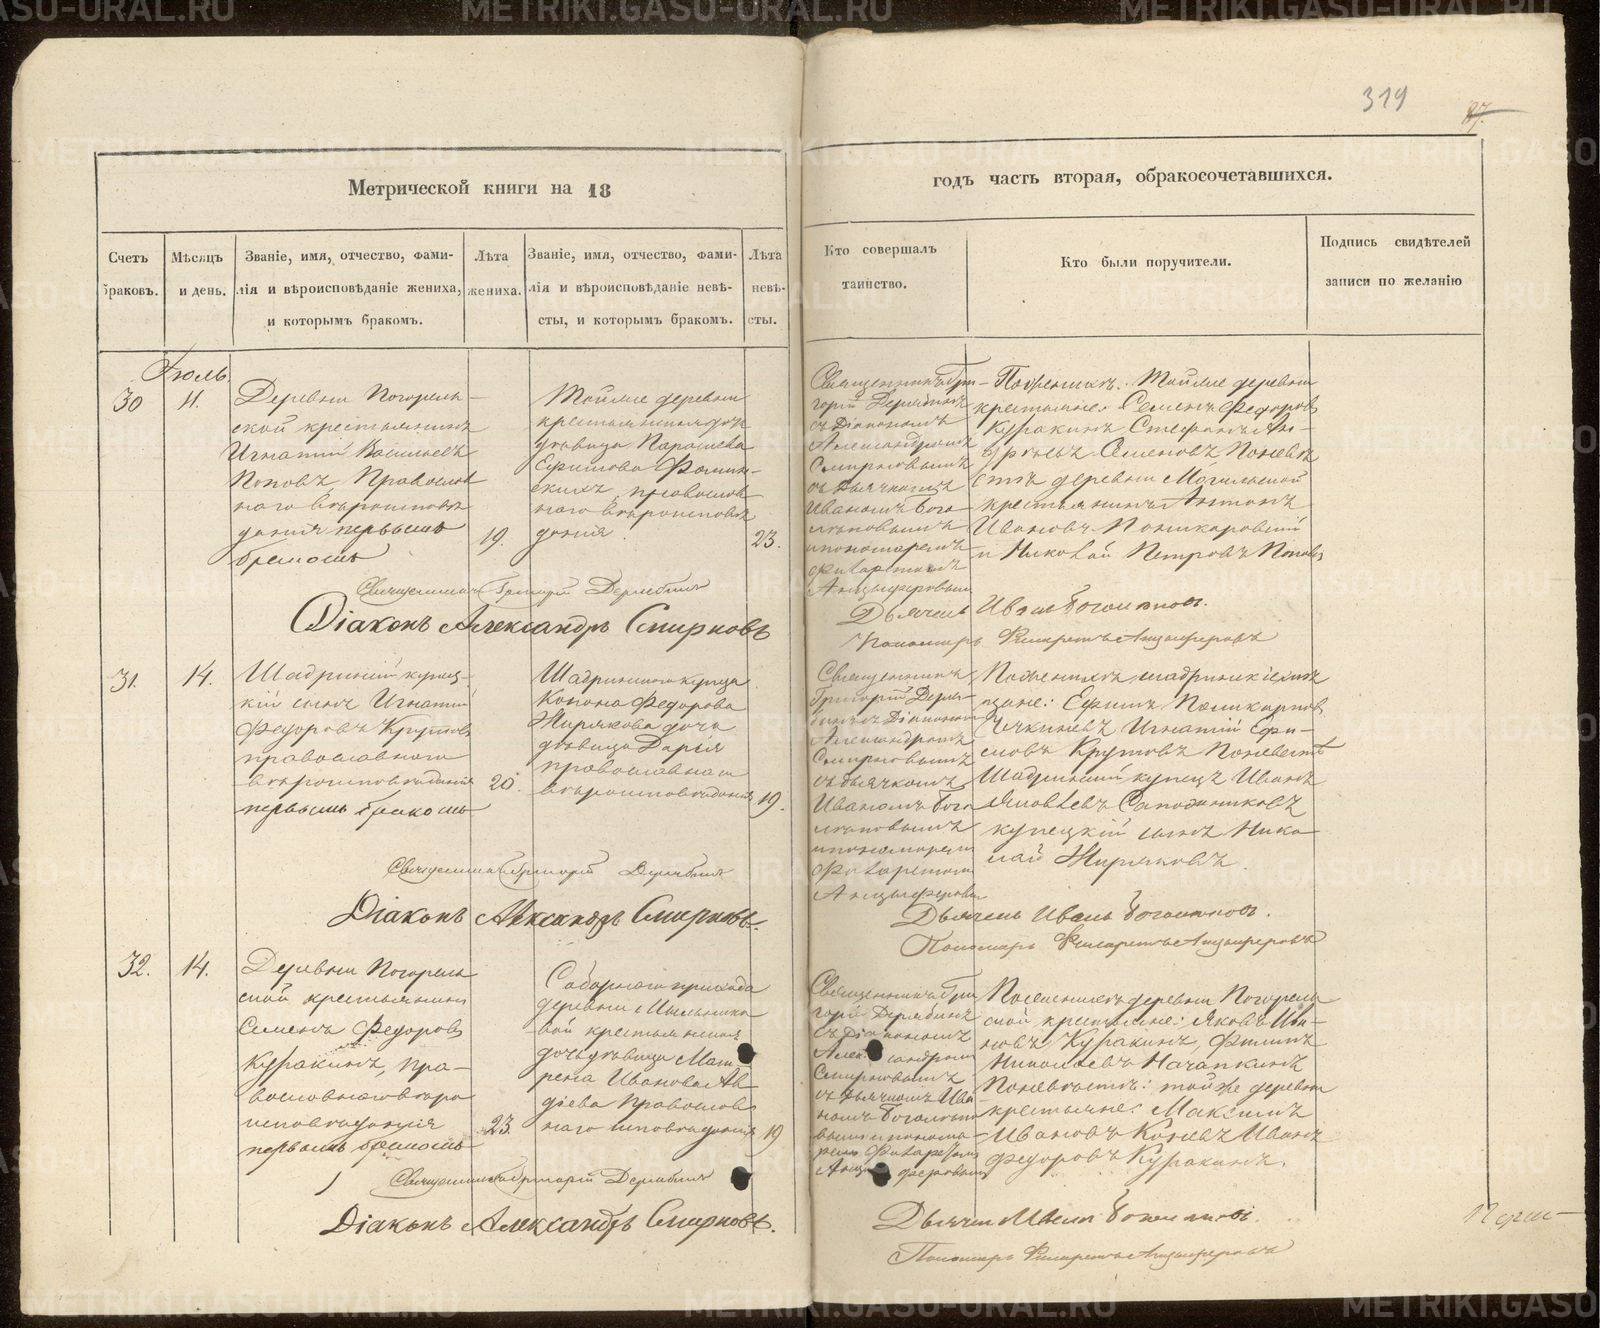 319
87.
Метрической книги на 18
годъ часть вторая, обракосочетавшихся.
Счетъ браковъ.
Мѣсяцъ и день.
Званіе, имя, отчество, фами-
лія и вѣроисповѣданіе жениха,
и которымъ бракомъ.
Лѣта
жениха.
Званіе, имя, отчество, фами-
лія и вѣроисповѣданіе невѣ-
сты, и которымъ бракомъ.
Лѣта
невѣ-
сты.
Кто совершалъ
таинство.
Кто были поручители.
Подпись свидѣтелей
записи по желанію
Іюль
30
11.
Деревни Погорѣль-
ской крестьянинъ
Игнатій Васильевъ
Поповъ, Православ
наго вѣроисповѣ
данія первымъ
бракомъ
19.
Тойже деревни
крестьянина дочь
дѣвица Параскева
Ефимова Фомин-
скихъ, православ
наго вѣроисповѣ
данія
23.
Священникъ Гри-
горій Дерябинъ
съ Діакономъ
Александромъ
Смирновымъ
съ дьячкомъ
Иваномъ Бого-
мъ
и пономаремъ
Филаретомъ
Анцыферовым
По женихѣ: Тойже деревни
крестьяне: Семенъ Федоровъ
Куракинъ Стефанъ Ан-
дреевъ Семеновъ По невѣ
стѣ деревни Могильской
крестьянинъ Антонъ
Ивановъ
и Николай Петровъ Поповъ
Священникъ Григорій Дерябинъ
Діаконъ Александръ Смирновъ
Дьячекъ Иванъ
Пономарь Филаретъ Анцыферовъ
31.
14.
Шадринскій купец-
кій сынъ Игнатій
Федоровъ Крутовъ
православнаго
вѣроисповѣданія
первымъ бракомъ
20.
Шадринскаго купца
Конона Федорова
Жирякова дочь
дѣвица Дарія
православнаго
вѣроисповѣданія
19.
Священникъ
Григорій Деря-
бинъ съ Діакономъ
Александромъ
Смирновымъ
съ дьячкомъ
Иваномъ Бого
мъ
и пономаремъ
Филаретомъ
Анцыферовым
По женихѣ шадринскіе мѣ
щане: Ефимъ Поликарпов
Игнатій Ефи-
мовъ Крутовъ По невѣстѣ
Шадринскій купецъ Иванъ
Яковлевъ Сапожниковъ
купецкій сынъ Нико
лай Жиряковъ.
Священникъ Григорій Дерябинъ
Діаконъ Александръ Смирновъ.
Дьячекъ Иванъ
Пономарь Филаретъ Анцыферовъ
32.
14.
Деревни Погорѣль
ской крестьянинъ
Семенъ Федоровъ
Куракинъ, пра-
вославнаго вѣро
исповѣданія
первымъ бракомъ
23.
Соборнаго прихода
деревни Мыльнико
вой крестьянина
дочь дѣвица Мат
рена Иванова Ав
діева православ
наго исповѣданія
19
Священникъ Гри
горій Дерябинъ
съ Діакономъ
Александромъ
Смирновымъ
съ дьячкомъ Ива
номъ
и понома
ремъ Филаретомъ
Анцыферовымъ
По женихѣ деревни Погорѣль
ской крестьяне: Яковъ Ива-
новъ Куракинъ, Филипъ
Николаевъ Начапкинъ
По невѣстѣ: тойже деревни
крестьяне: Максимъ
Ивановъ Иванъ
Федоровъ Куракинъ.
Священникъ Григорій Дерябинъ
Діаконъ Александръ Смирновъ.
Дьячекъ Иванъ
Пономарь Филаретъ Анцыферовъ
METRIKI.GASO-URAL.RU